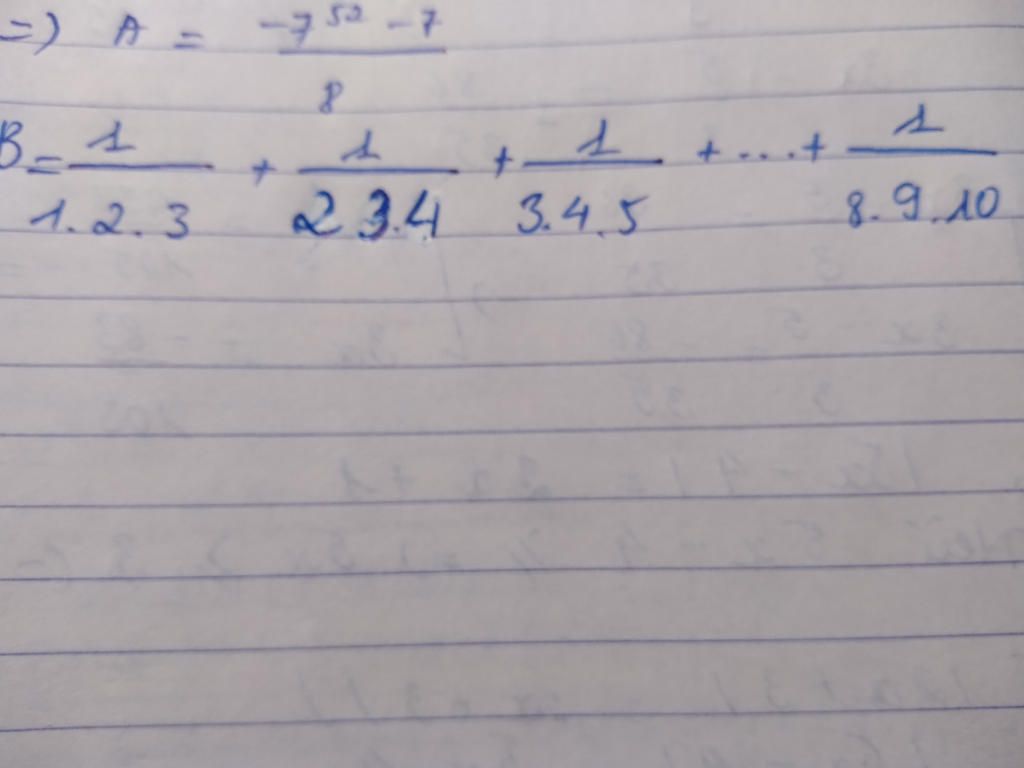 =) A = -7^52 - 7 / 8
B = 1/1.2.3 + 1/2.3.4 + 1/3.4.5 + ... + 1/8.9.10